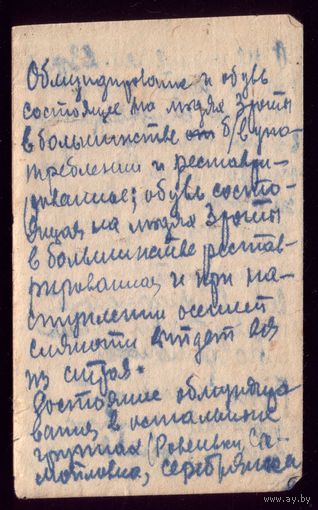 Обмундирование и обувь
состоящие на людях 3 роты
в большинстве б/в упо-
треблении и реставри-
рованное; обувь состо-
ящая на людях 3 роты
в большинстве рестав-
рированная и при на-
ступлении осенней
слякоти выйдет вся
из строя.
Состояние обмундиро
вания в остальных
группах (Ровеньки, Са-
мойловка, Серебрянка
ay.by